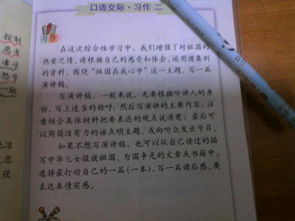 口语交际·习作 二
习作
在这次综合性学习中，我们增强了对祖国的
热爱之情。请根据自己的感受和体会，运用搜集到
的资料，围绕“祖国在我心中”这一主题，写一篇
演讲稿。
写演讲稿，一般来说，先要根据听讲人的身
份，写上适当的称呼，然后写演讲的主要内容。注
意结合具体材料把要表达的观点说清楚。最后可
以用简洁有力的话点明主题，或向听众发出号召。
如果不想写演讲稿，也可以从自己读过的描
写中华儿女报效祖国、为国争光的文章或书籍中，
选择最打动自己的一篇（一本），写一篇读后感。要
表达真情实感。